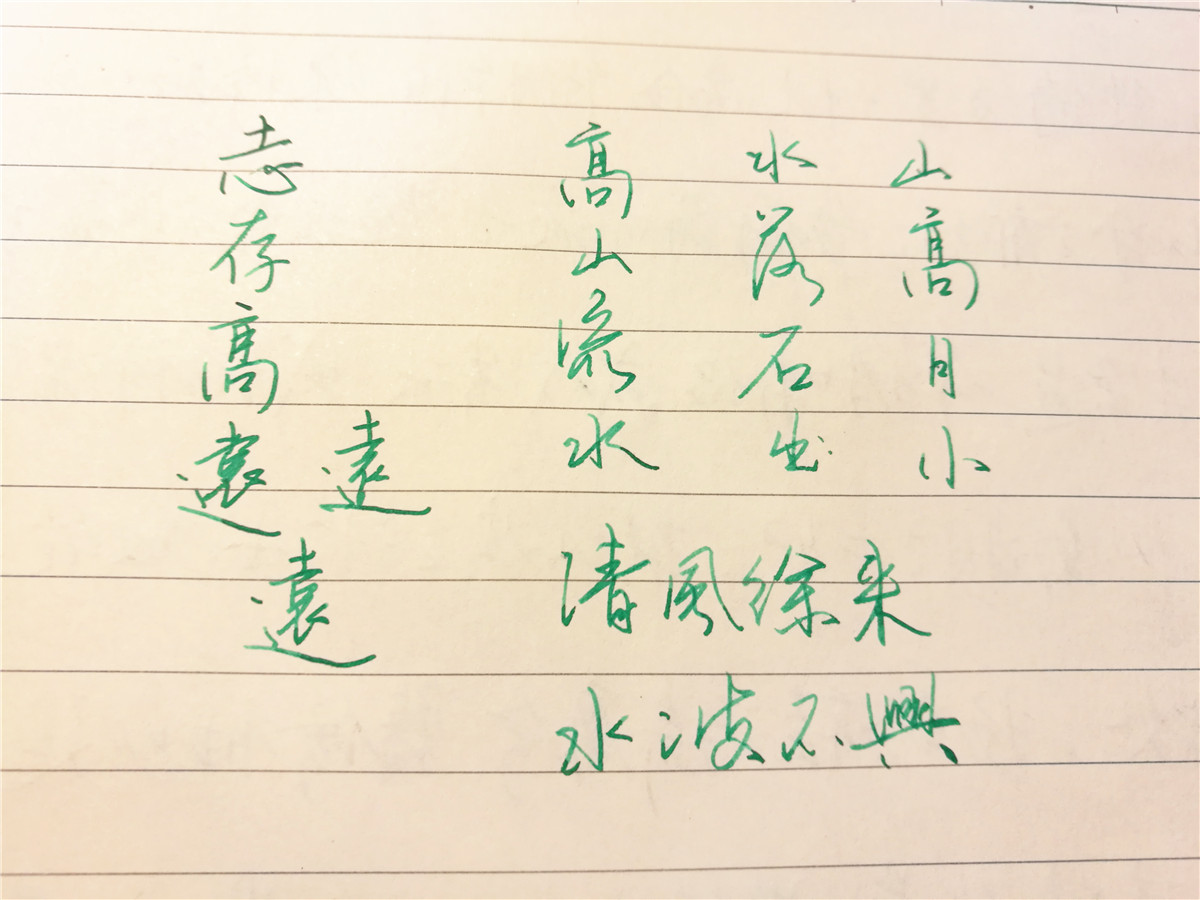 山高月小
水落石出
高山流水
清風徐来
水波不興
志存高遠
遠
遠